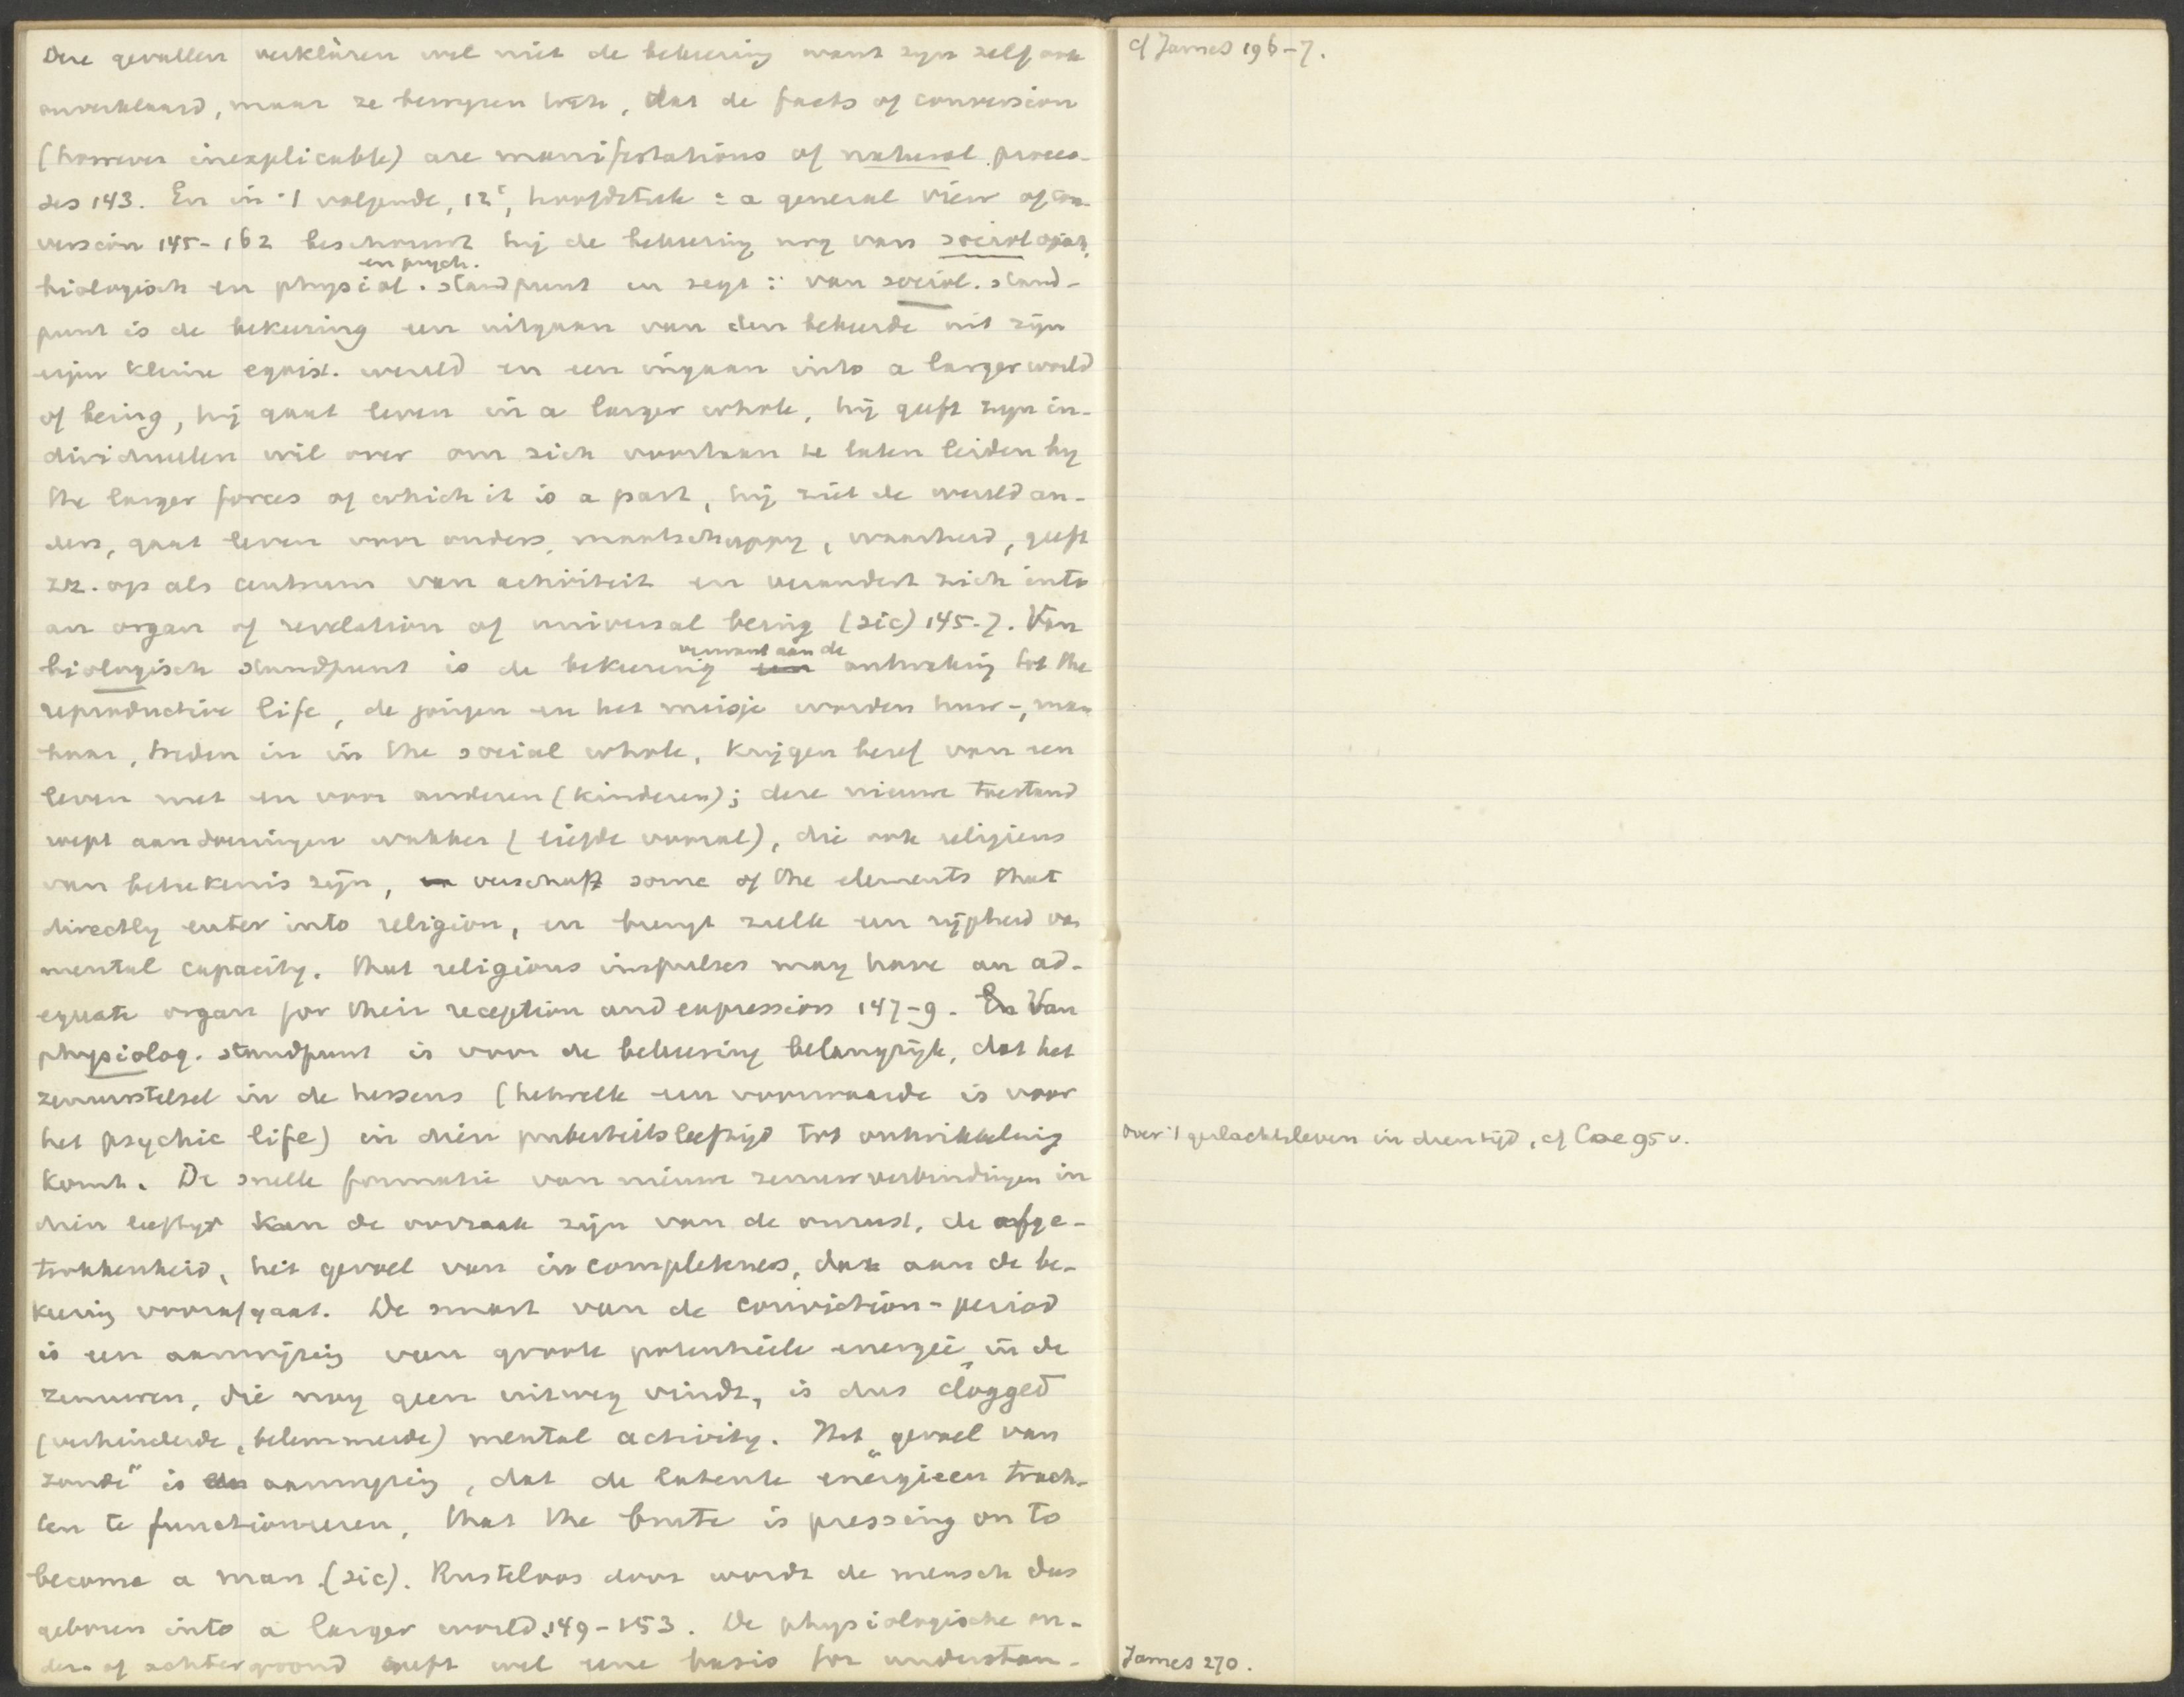 Deze gevallen verklaren wel niet de bekeering want zijn zelf ook
onverklaard, maar ze bewijzen toch, dat de facts of conversion
(however inexplicable) are manifestations of natural proces-
ses 143. En in 't volgende, 12e, hoofdstuk : a general view of con-
version 145-162 beschouwt hij de bekeering nog van sociologisch,
en psych.
biologisch en physiol. standpunt en zegt : van sociol. stand-
punt is de bekeering een uitgaan van den bekeerde uit zijn
eigen kleine egoist. wereld en een ingaan into a larger world
of being, hij gaat leven in a larger whole, hij geeft zijn in-
dividueelen wil over om zich voortaan te laten leiden by
the larger forces of which it is a part, hij ziet de wereld an-
ders, gaat leven voor anders, maatschappij, waarheid, geeft
zz. op als centrum van activiteit en verandert zich into
an organ of revelation of universal being (sic) 145-7. Van
verwant aan de
biologisch standpunt is de bekeering een ontwaking tot the
reproductive life, de jongen en het meisje worden huw-, man
baar, treden in in the social whole, krijgen besef van een
leven met en voor anderen (kinderen); deze nieuwe toestand
wept aandoeningen wakker (liefde vooral), die ook religieus
van beteekenis zijn, en verschaft some of the elements that
directly enter into religion, en brengt zulk een rijpheid van
mental capacity, that religious impulses may have an ad-
equate organ for their reception and expression 147-9. En Van
physiolog. standpunt is voor de bekeering belangrijk, dat het
zenuwstelsel in de hessens (hetwelk een voorwaarde is voor
het psychic life) in dien puberteitsleeftijd tot ontwikkeling
komt. De snelle formatie van nieuwe zenuwverbindingen in
dien leeftijd kan de oorzaak zijn van de onrust, de afge-
trokkenheid, het gevoel van incompleteness, dat aan de be-
keering voorafgaat. De smart van de conviction-period
is een aanwijzing van groote potentieele energie in de
zenuwen, die nog geen uitweg vindt, is dus clogged
(verhinderde, belemmerde) mental activity. Het „gevoel van
zonde" is een aanwijzing, dat de latente energieen trach-
ten te functioneeren, that the brute is pressing on to
become a man (sic). Rusteloos door wordt de mensch dus
geboren into a larger world 149-153. De physiologische on-
der- of achtergrond geeft wel eene basis for understan-
cf James 196-7.
over 't geslachtsleven in dien tijd, cf Coe 95 v.
James 270.